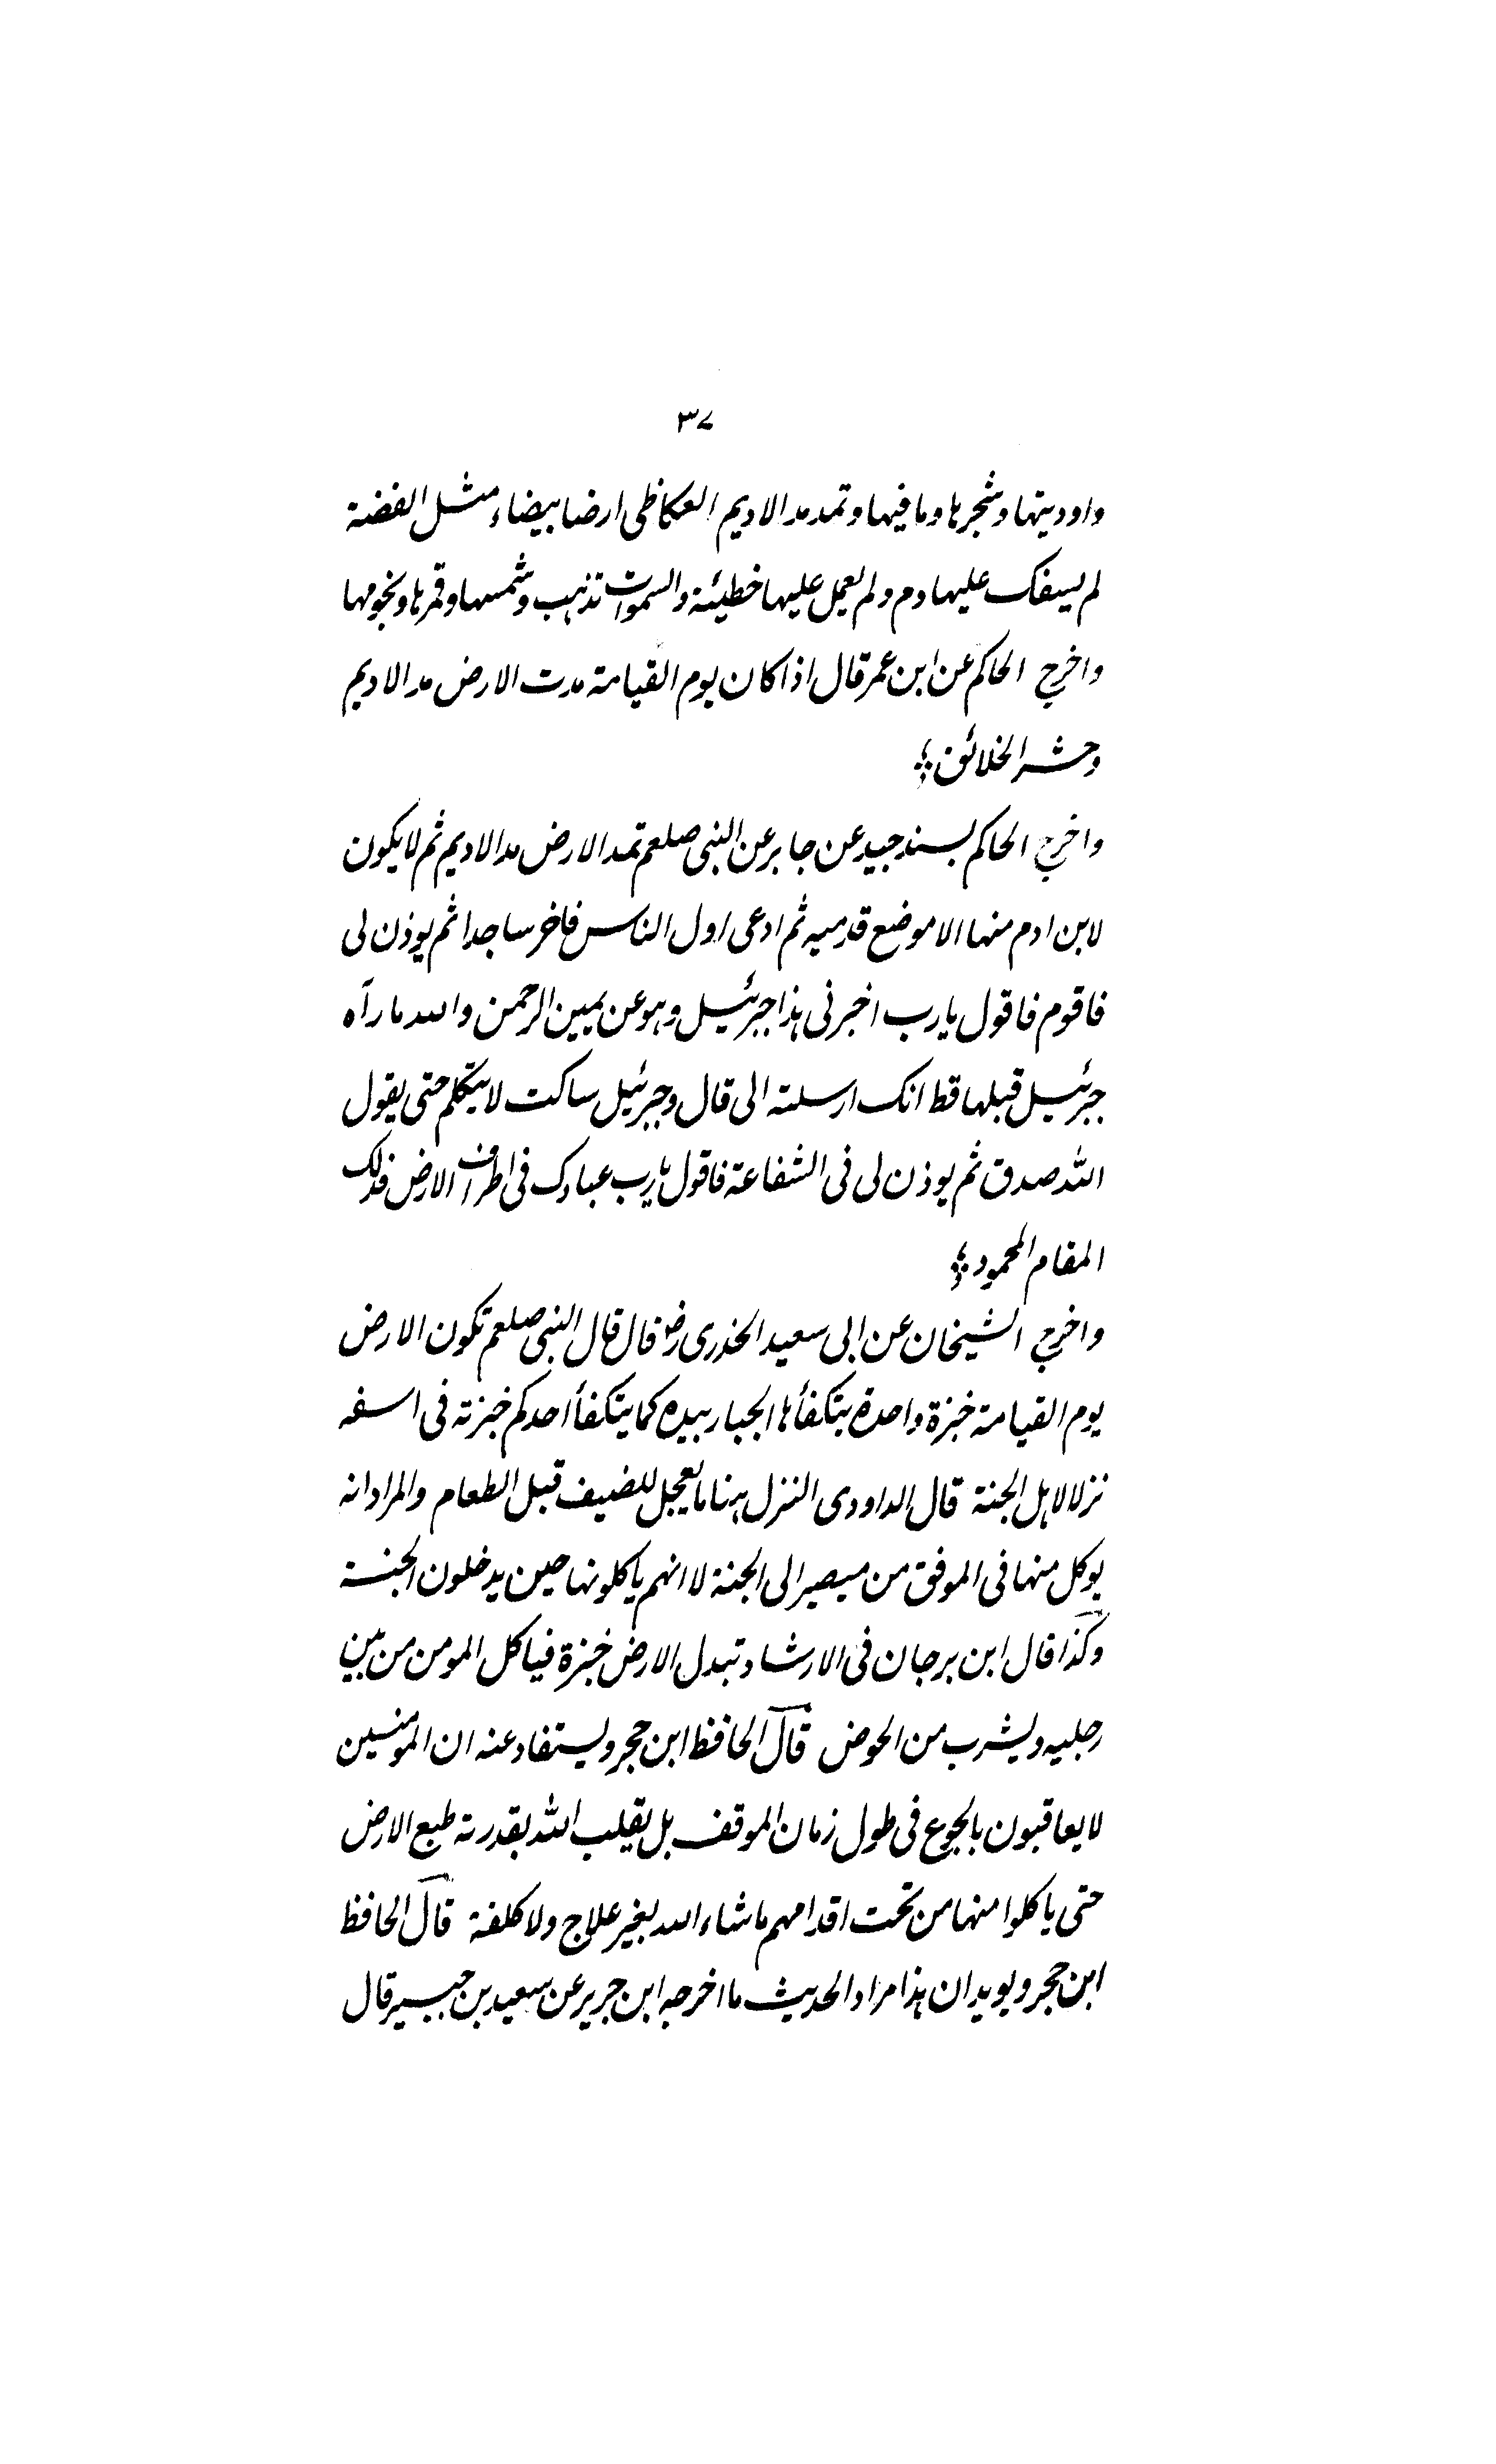 ۳۷
واوديتها وشجرها وما فيها وتمد مد الاديم العكاظى ارضا بيضاء مثل الفضة
لم يسفك عليها دم ولم يعمل عليها خطيئة والسموات تذهب وشمسها وقمرها ونجومها
واخرج الحاكم عن ابن عمر قال اذا كان يوم القيامة مدت الارض مد الاديم
وحشر الخلائق
واخرج الحاكم بسند جيد عن جابر عن النبى صلعم تمد الارض مد الاديم ثم لا يكون
لابن ادم منها الا موضع قدميه ثم ادعى اول الناس فاخر ساجدا ثم يوذن لى
فاقوم فاقول يا رب اخبرنى هذا جبرئيل وهو عن يمين الرحمن والله ما رآه
جبرئيل قبلها قط انك ارسلته الى قال وجبرئيل ساكت لا يتكلم حتى يقول
الله صدق ثم يوذن لى فى الشفاعة فاقول يا رب عبادك فى اطراف الارض فذلك
المقام المحمود
واخرج الشيخان عن ابى سعيد الخدرى رض قال قال النبى صلعم تكون الارض
يوم القيامة خبزة واحدة يتكفأها الجبار بيده كما يتكفأ احدكم خبزته فى اسفه
نزلا لاهل الجنة قال الداودى النزل هنا ما يعجل للضيف قبل الطعام والمراد انه
يوكل منها فى الموفق من ميصير الى الجنة لا انهم ياكلونها حين يدخلون الجنة
وكذا قال ابن برجان فى الارشاد تبدل الارض خبزة فياكل المومن من بين
رجليه ويشرب من الحوض قال الحافظ ابن حجر ويستفاد عنه ان المومنين
لا يعاقبون بالجوع فى طول زمان الموقف بل يقلب الله بقدرته طبع الارض
حتى ياكلوا منها من تحت اقدامهم ما شاء الله بغير علاج ولا كلفة قال الحافظ
ابن حجر ويويد ان هذا مراد الحديث ما اخرجه ابن جرير عن سعيد بن جبير قال